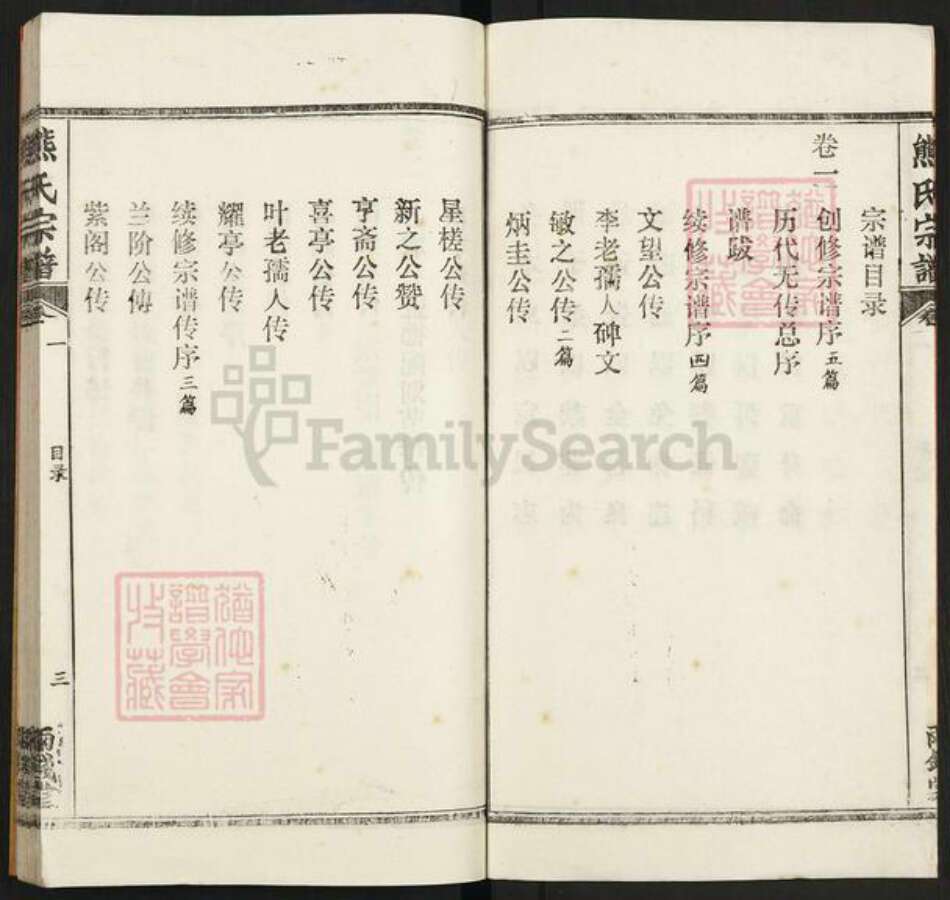 宗谱目录
卷一
创修宗谱序五篇
历代无传总序
谱跋
续修宗谱序四篇
文望公传
李老孺人碑文
敏之公传二篇
炳圭公传
熊氏宗谱
星槎公传
新之公赞
亨斋公传
喜亭公传
叶老孺人传
耀亭公传
续修宗谱传序三篇
兰阶公傳
紫阁公传
熊氏宗譜
卷一
目录
三
FamilySearch